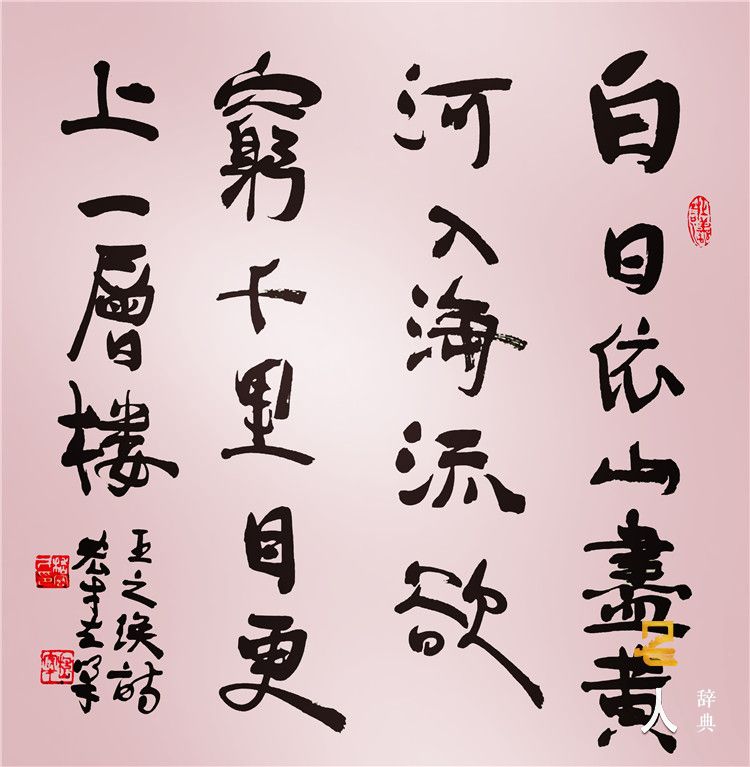 白日依山盡黃
河入海流欲
窮千里目更
上一層樓
王之渙詩
人
辞典